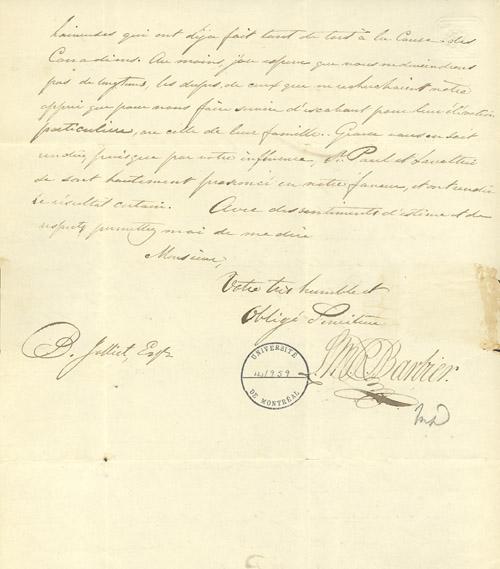 haineuses qui ont déja fait tant de tort à la Cause des
Canadiens. Au moins, j'ose espérer que nous ne deviendrons
pas de longtems, les dupes de ceux qui ne recherchaient notre
appui que pour nous faire servir d'escabeau pour leur élévation
particulière, ou celle de leur famille. Graces vous en soit
rendue, puisque par votre influence, St. Paul et Lavaltrie
se sont hautement prononcé en notre faveur, et ont rendu
le résultat certain. Avec des sentiments d'estime et de
respects, permettez moi de me dire
Monsieur,
Votre très humble et
Obligé Serviteur
B. Jolliet, Esqr.
Barbier
UNIVERSITÉ
1959
DE MONTRÉAL